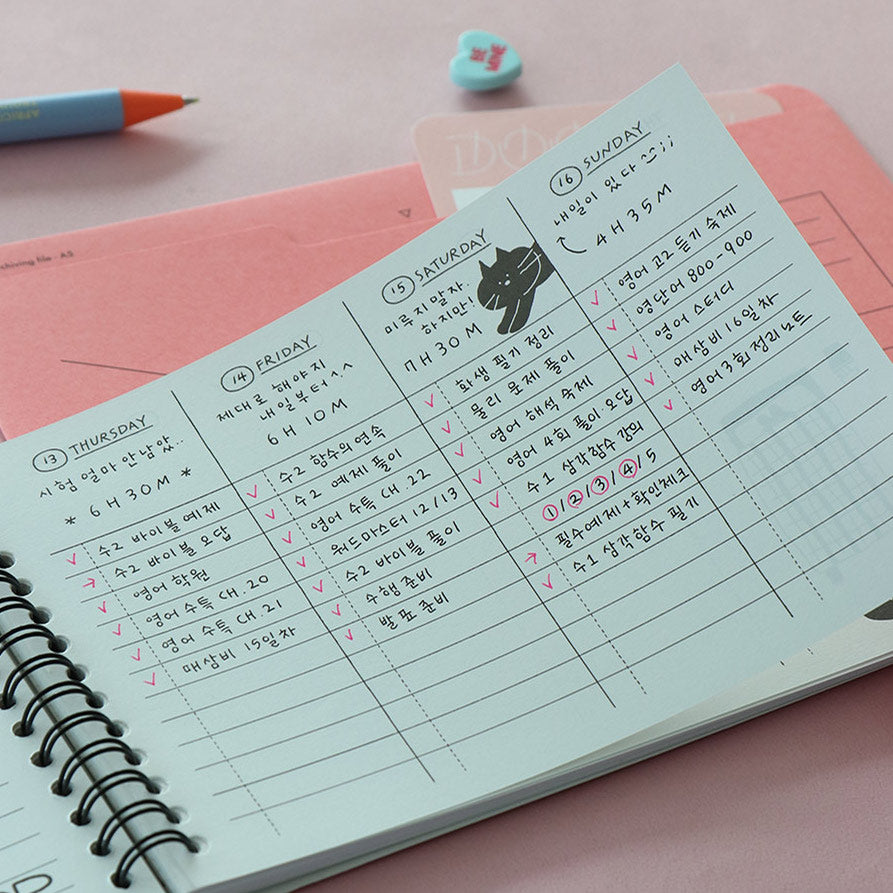 BE
MINE
chiving file - A5
13 THURSDAY
시험 얼마 안남았..
* 6H 30M *
수2 바이블 예제
수2 바이블 오답
영어 학원
영어 수특 CH.20
영어 수특 CH.21
매삼비 15일차
14 FRIDAY
제대로 해야지
내일부터^^
6H 10M
수2 함수의 연속
수2 예제 풀이
영어 수특 CH.22
워드마스터 12/13
수2 바이블 풀이
수행 준비
발표 준비
15 SATURDAY
미루지말자.
하지만!
7H 30M
화생 필기 정리
물리 문제 풀이
영어 해석 숙제
영어 4회 풀이 오답
수1 삼각함수 강의
1/2/3/4/5
필수예제+확인체크
수1 삼각함수 필기
16 SUNDAY
내일이 있다 ;;
4H 35M
영어 고2 듣기 숙제
영단어 800-900
영어 스터디
매삼비 16일차
영어 3회 정리노트